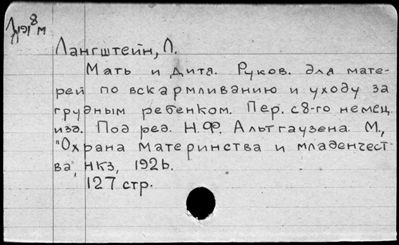 8
191 м
Лангштейн, Л.
Мать и дитя. Руков. для мате-
рей по вскармливанию и уходу за
грудным ребенком. Пер. с 8-го немец.
изд. Под ред. Н.Ф. Альтгаузена. М.,
"Охрана материнства и младенчест-
ва, НКЗ, 1926.
127 стр.